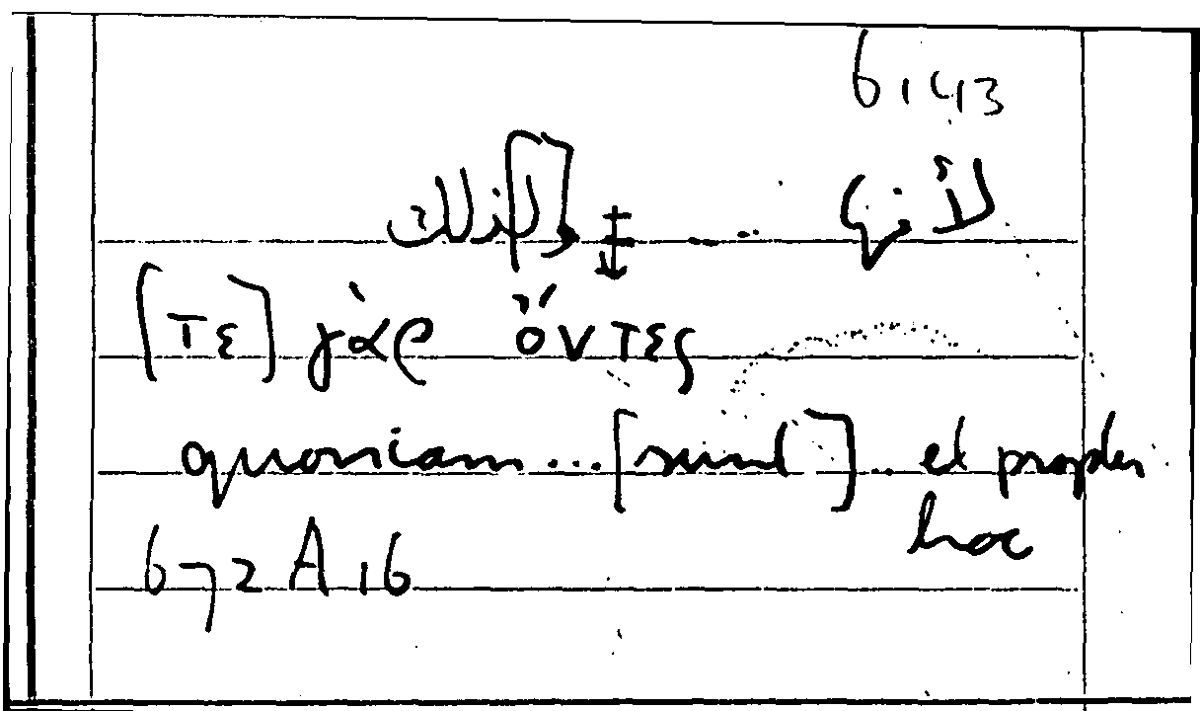 6,43
لأنها ... ولذلك
[τε] γὰρ ὄντες
quoniam ... [sunt] .. et propter
hoc
672 A 16